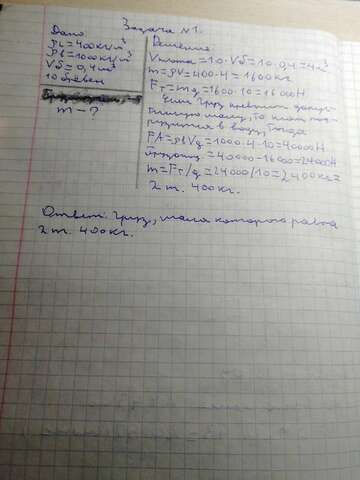 Задача №1.
Дано
ρб=400кг/м³
ρв=1000кг/м³
Vб=0,4м³
10 бревен
m-?
Решение
Vплота=10·Vб=10·0,4=4м³
m=ρV=400·4=1600кг
Fт=mg=1600·10=16000Н
Если груз превысит допус-
тимую массу, то плот пог-
рузится в воду, тогда
FA=ρвVg=1000·4·10=40000Н
=40000-16000=24000Н
m=Fт/g=24000/10=2400кг=
2т. 400кг.
Ответ: груз, масса которого равна
2т. 400кг.